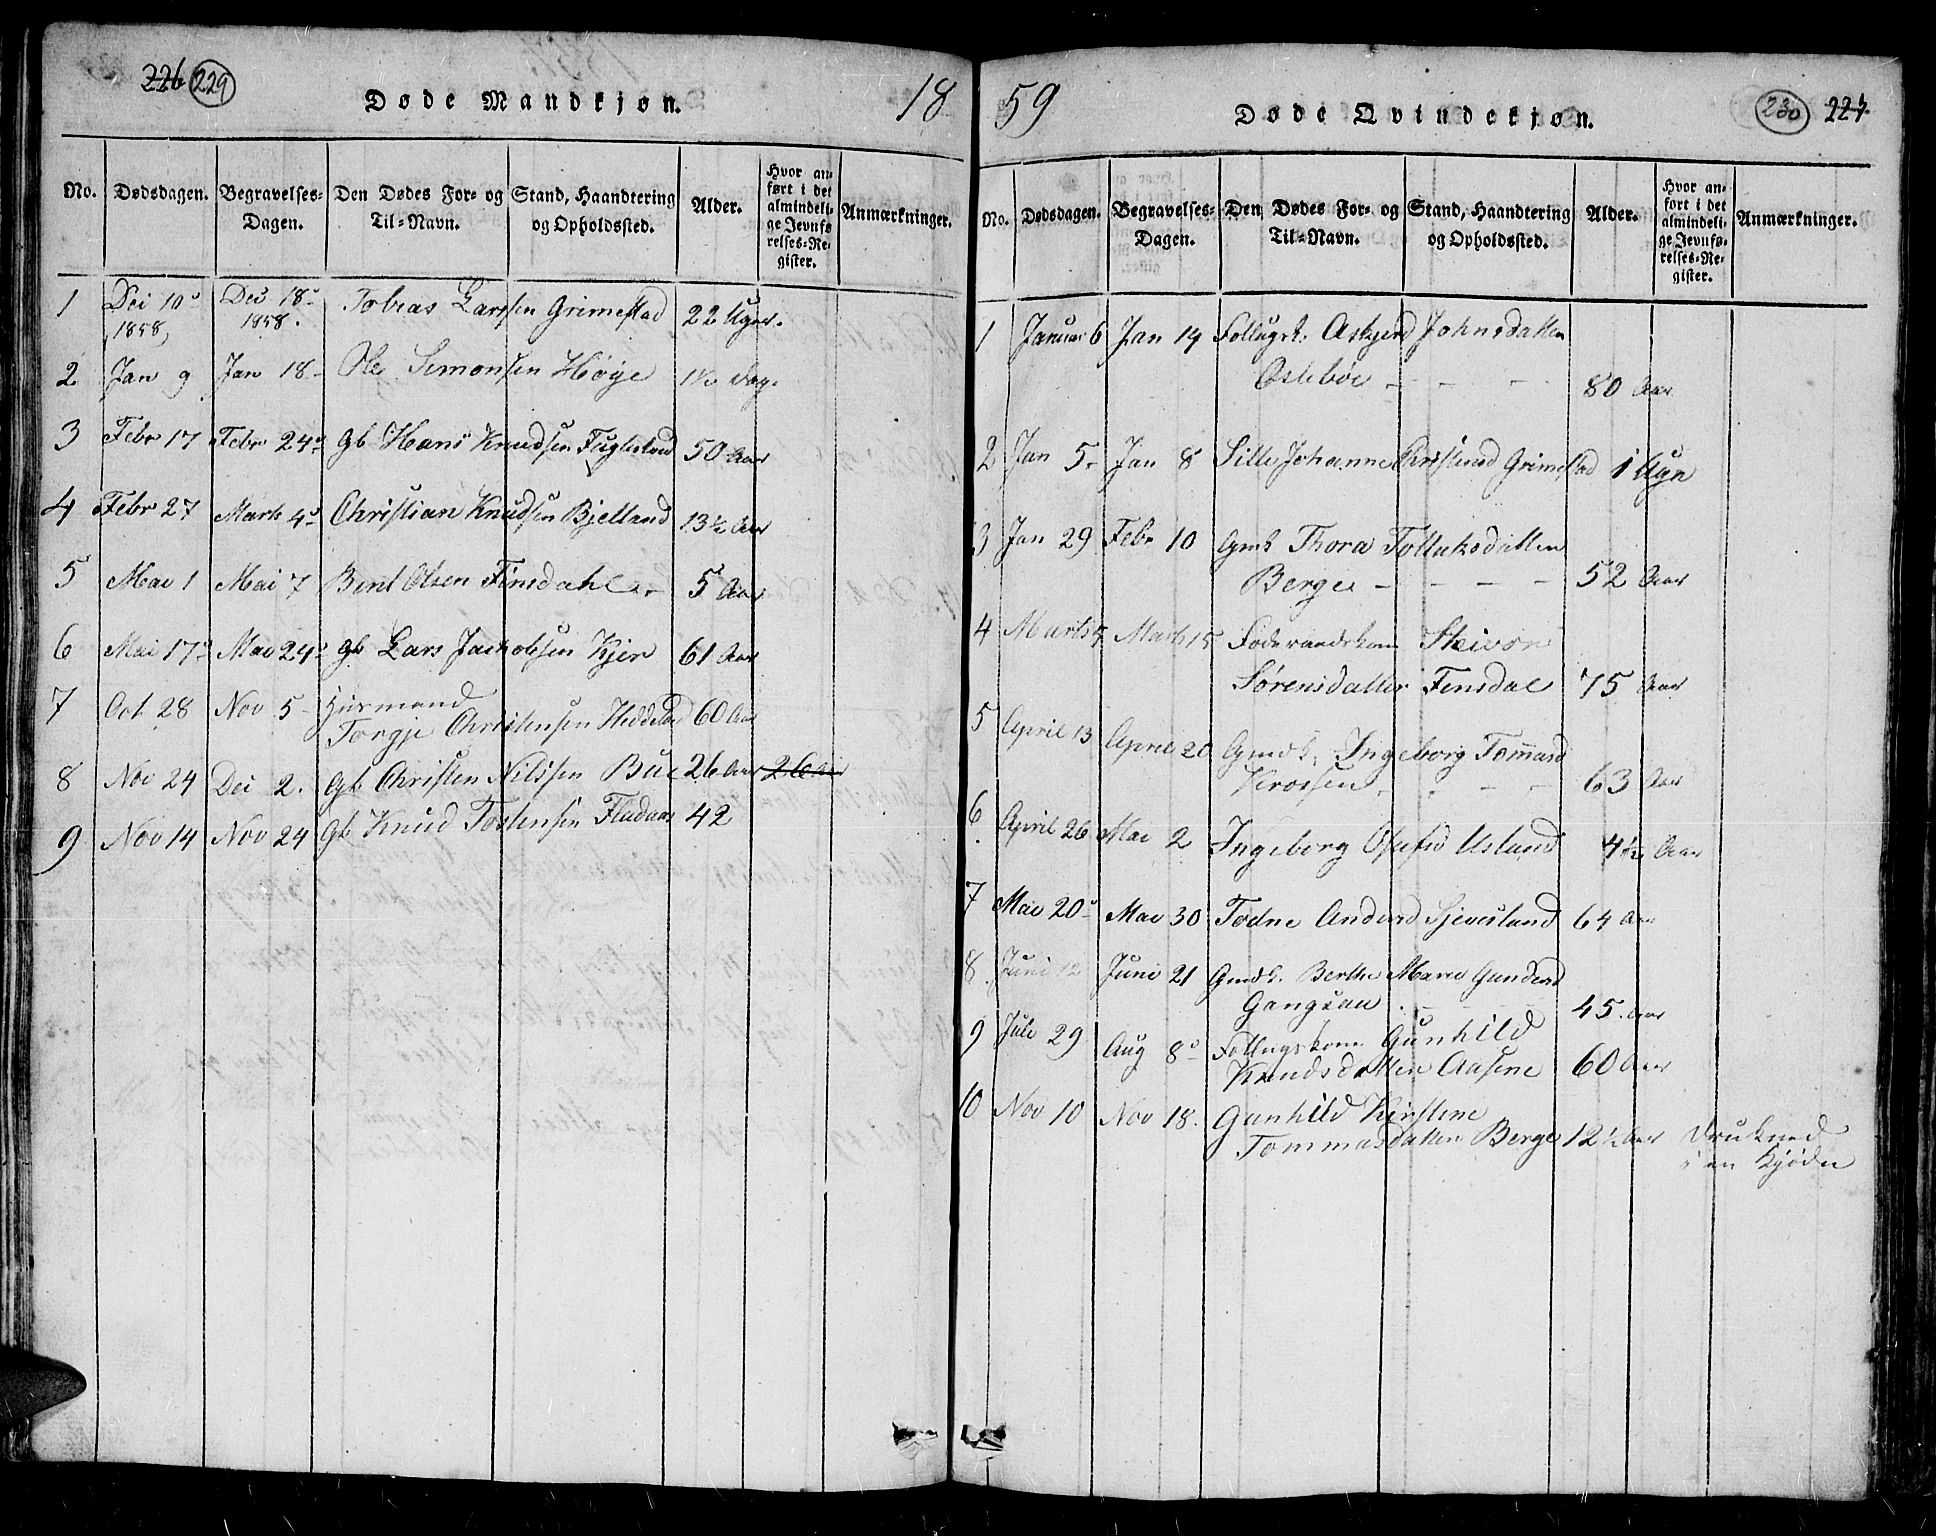 226 229
Døde Mandkjøn.
18
No. Dødsdagen. Begravelses-Dagen. Den Dødes For- og Til-Navn. Stand, Haandtering og Opholdssted. Alder. Hvor anført i det almindelige Jevnførelses-Register. Anmærkninger.
1 Dei 10de 1858, Dei 18de 1858. Tobias Larssen Grimestad 22 Uger.
2 Jan 9 Jan 18 Ole Simonsen Høye 1½ Dag.
3 Febr 17 Febr 24de gb Hans Knudsen Fuglestved 50 Aar
4 Febr 27 Marts 4de Christian Knudsen Bjelland 13½ Aar
5 Mai 1 Mai 7 Bent Olsen Finsdahl 5 Aar
6 Mai 17de Mai 24de gb Lars Jacobsen Kjer 61 Aar
7 Oct 28 Nov 5 Huusmand
Torgje Christensen Heddeland 60 Aar
8 Nov 24 Dei 2. Gb Christen Nilssen Bue 26 Aar 26 Aar
9 Nov 14 Nov 24 Gb Knud Tostensen Fladaas 42
59
Døde Qvindekjøn.
230 227
No. Dødsdagen. Begravelses-Dagen. Den Dødes For- og Til-Navn. Stand, Haandtering og Opholdssted. Alder. Hvor anført i det almindelige Jevnførelses-Register. Anmærkninger.
1 Januar 6 Jan 14 Follugsk. Askjerd Johnsdatter
Oslebøe - - - 80 Aar
2 Jan 5 Jan 8 Sille Johanne Christensd Grimestad 1 Ugn
3 Jan 29 Febr 10 Gmk Thora Tollaksdatter
Berge - - - - 52 Aar
4 Marts 5 Marts 15 Føderaadskone Steivor
Sørensdatter Finsdal 75 Aar
5 April 13 April 20 Gmdk. Ingeborg Tommasd
Krossen - - - 63 Aar
6 April 26 Mai 2 Ingeborg Olufsd Usland 4½ Aar
7 Mai 20de Mai 30 Todne Andersd Sjevesland 64 Aar
8 Juni 12 Juni 21 Gmdk. Berthe Marie Gundersd
Gangsaa - - 45 Aar
9 Juli 29 Aug 8de Follugskone Gunhild
Knudsdatter Aasene 60 Aar
10 Nov 10 Nov 18. Gunhild Kirstine
Tommasdatter Berge 12½ Aar Druknede
i en Kjødn